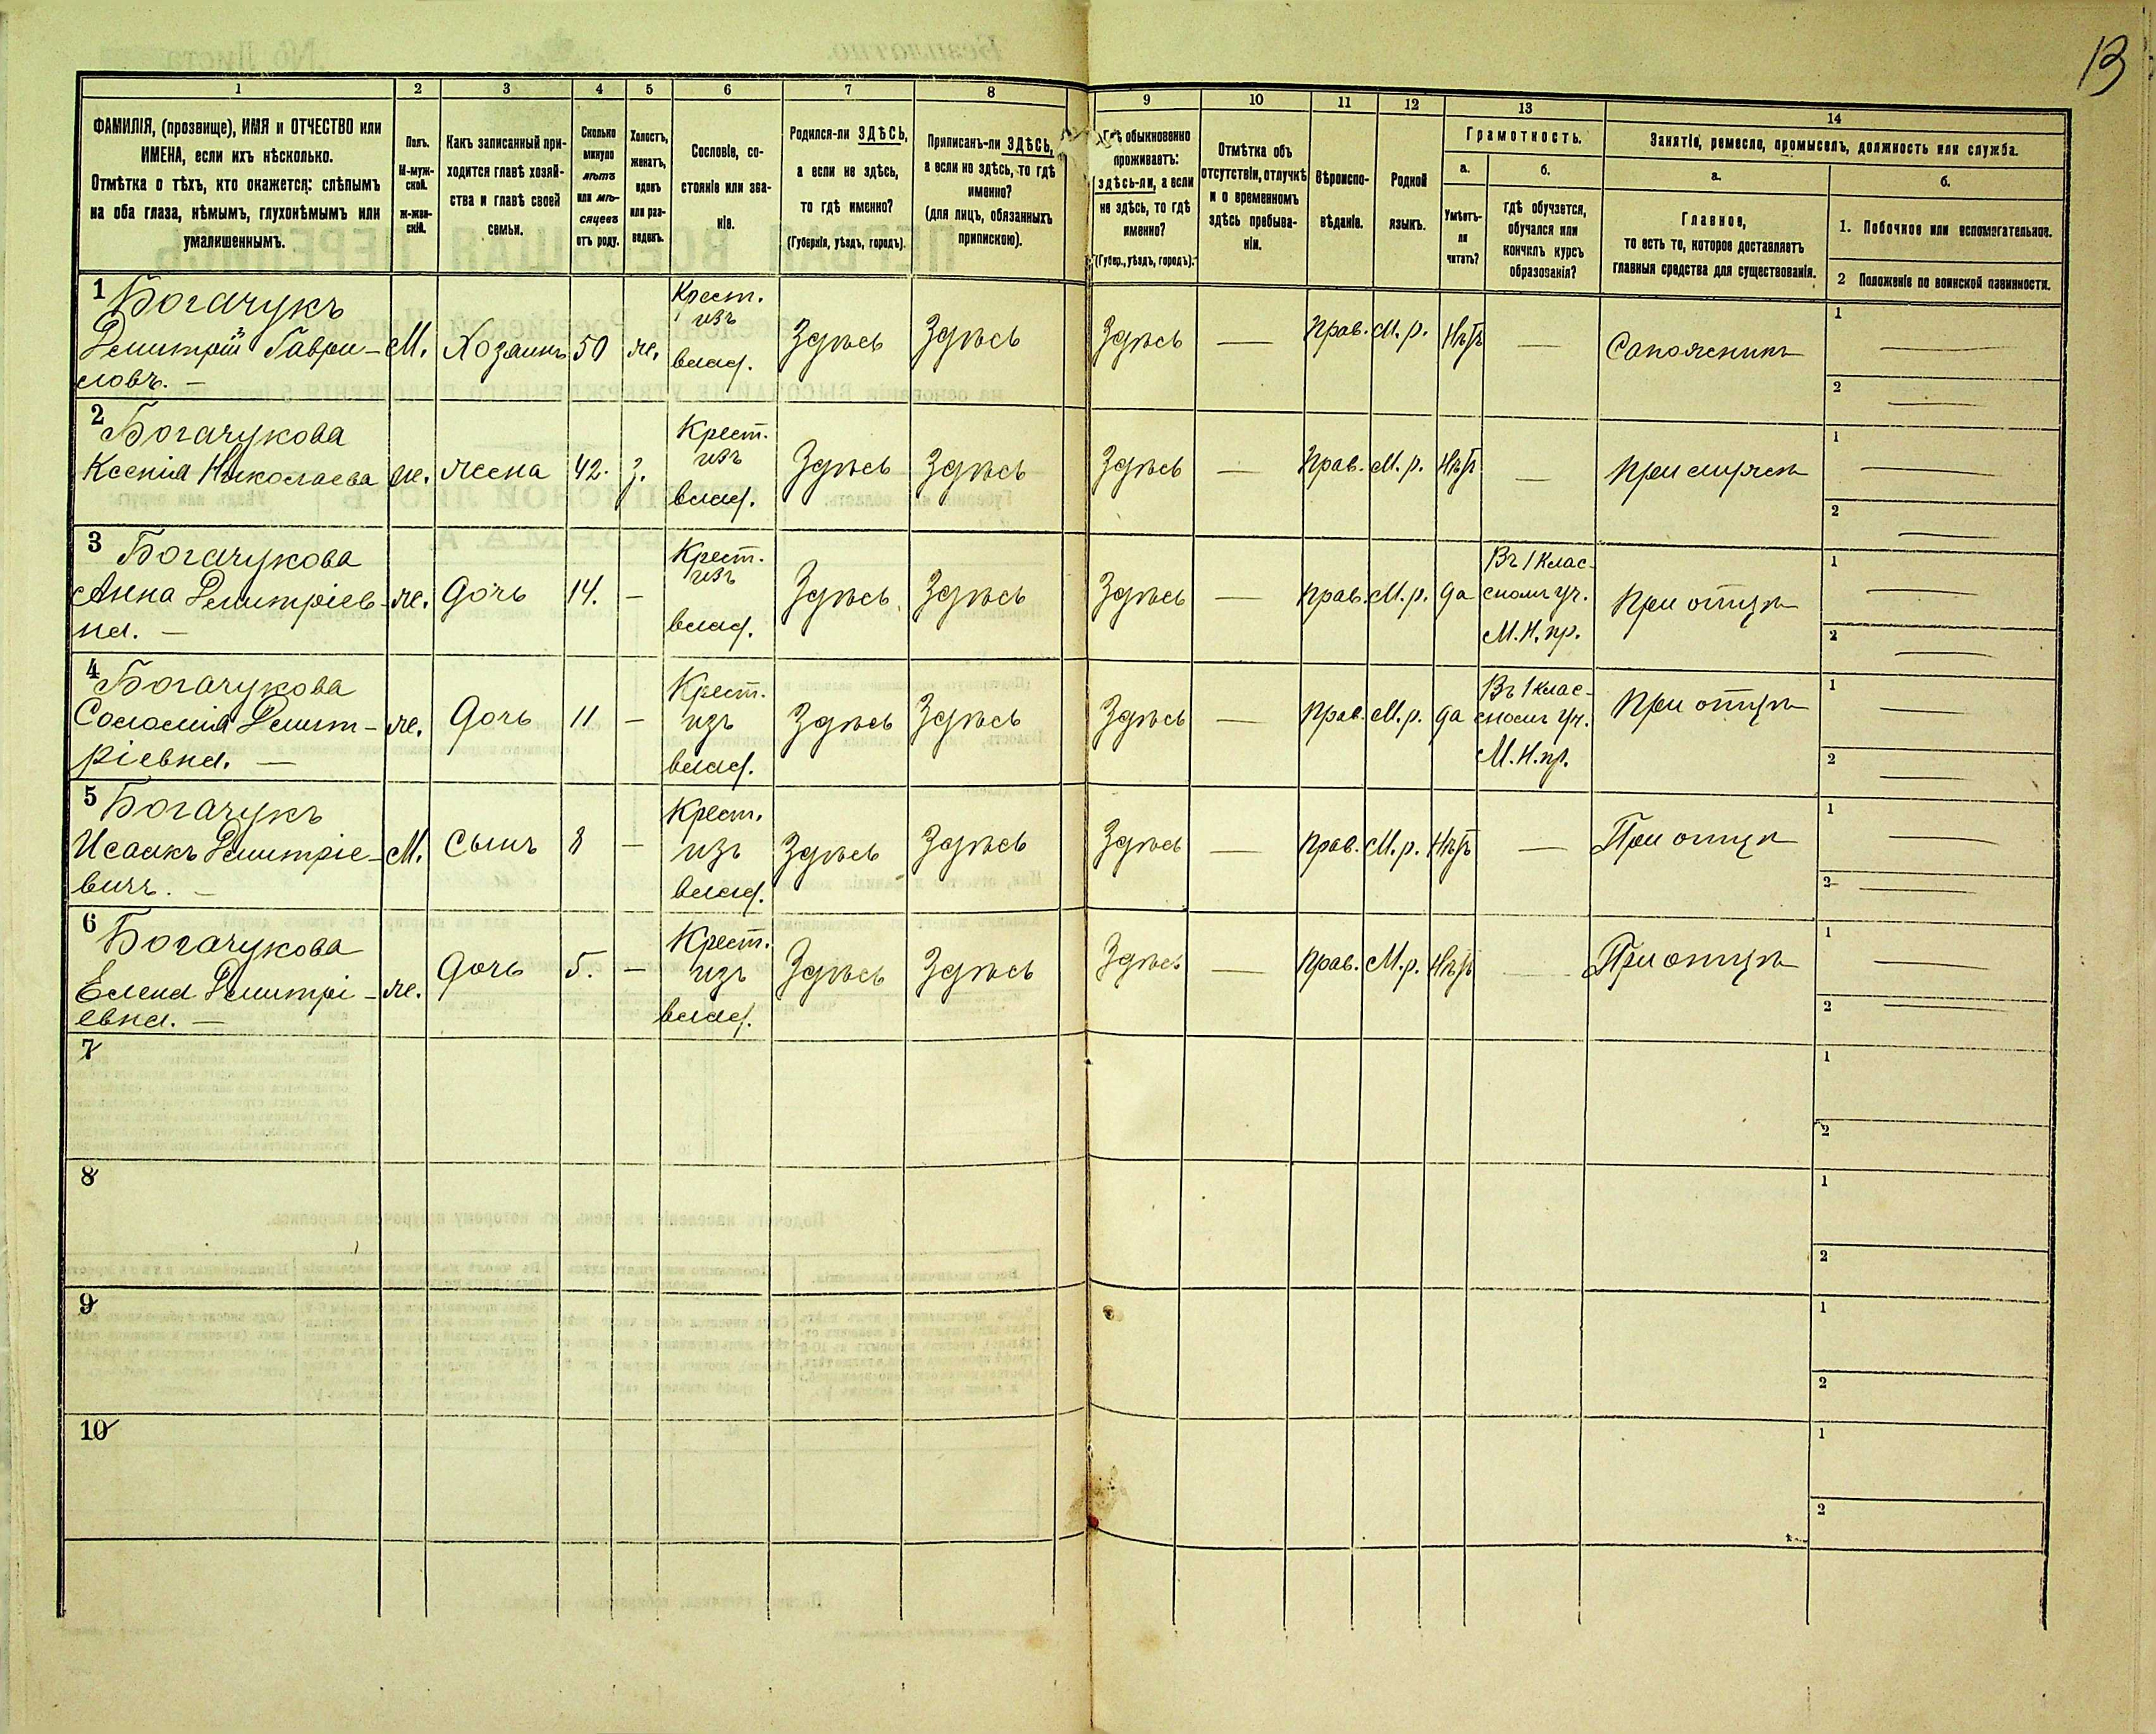 13
1 2 3 4 5 6 7 8 9 10 11 12 13 14
ФАМИЛІЯ, (прозвище), ИМЯ и ОТЧЕСТВО или
ИМЕНА, если ихъ нѣсколько.
Отмѣтка о тѣхъ, кто окажется: слѣпымъ
на оба глаза, нѣмымъ, глухонѣмымъ или
умалишеннымъ.
Полъ.
М-муж-
ской.
ж-жен-
скій.
Какъ записанный при-
ходится главѣ хозяй-
ства и главѣ своей
семьи.
Сколько
минуло
лѣтъ
или мѣ-
сяцевъ
отъ роду.
Холостъ,
женатъ,
вдовъ
или раз-
веденъ.
Сословіе, со-
стояніе или зва-
ніе.
Родился-ли ЗДѢСЬ,
а если не здѣсь,
то гдѣ именно?
(Губернія, уѣздъ, городъ).
Приписанъ-ли ЗДѢСЬ,
а если не здѣсь, то гдѣ
именно?
(для лицъ, обязанныхъ
припискою).
Гдѣ обыкновенно
проживаетъ:
здѣсь-ли, а если
не здѣсь, то гдѣ
именно?
(Губер., уѣздъ, городъ).
Отмѣтка объ
отсутствіи, отлучкѣ
и о временномъ
здѣсь пребыва-
ніи.
Вѣроиспо-
вѣданіе.
Родной
языкъ.
Грамотность.
а.
Умѣетъ-
ли
читать?
б.
гдѣ обучается,
обучался или
кончилъ курсъ
образованія?
Занятіе, ремесло, промыселъ, должность или служба.
а.
Главное,
то есть то, которое доставляетъ
главныя средства для существованія.
б.
1. Побочное или вспомогательное.
2 Положеніе по воинской повинности.
1 Богачукъ
Димитрій Гаври-
ловъ. —
М. Хозяинъ 50 ж.
Крест.
изъ
влад.
Здѣсь Здѣсь Здѣсь — Прав. М. р. Нѣтъ — Сапожникъ
1 —
2 —
2 Богачукова
Ксенія Николаева
ж. жена 42. з.
Крест.
изъ
влад.
Здѣсь Здѣсь Здѣсь — Прав. М. р. Нѣтъ — При мужѣ
1 —
2 —
3 Богачукова
Анна Димитріев-
на. —
ж. дочь 14. —
Крест.
изъ
влад.
Здѣсь Здѣсь Здѣсь — Прав. М. р. да
Въ 1 клас-
сномъ уч.
М. Н. пр.
При отцѣ
1 —
2 —
4 Богачукова
Соломія Димит-
ріевна. —
ж. дочь 11 —
Крест.
изъ
влад.
Здѣсь Здѣсь Здѣсь — Прав. М. р. да
Въ 1 клас-
сномъ уч.
М. Н. пр.
При отцѣ
1 —
2 —
5 Богачукъ
Исаакъ Димитріе-
вичъ. —
М. сынъ 8 —
Крест.
изъ
влад.
Здѣсь Здѣсь Здѣсь — Прав. М. р. Нѣтъ — При отцѣ
1 —
2 —
6 Богачукова
Елена Димитрі-
евна. —
ж. дочь 5. —
Крест.
изъ
влад.
Здѣсь Здѣсь Здѣсь — Прав. М. р. Нѣтъ — При отцѣ
1 —
2 —
7
1
2
8
1
2
9
1
2
10
1
2